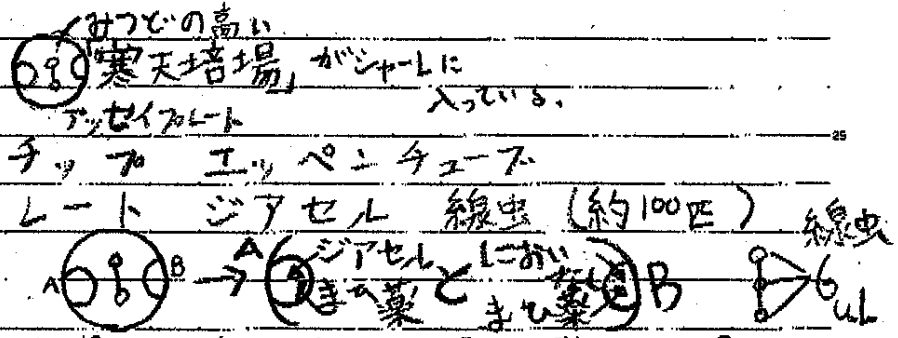 みつどの高い
「寒天培場」がシャーレに
入っている。
アッセイプレート
25
チップ エッペンチューブ
レート ジアセル 線虫 (約100匹)
線虫
A B → A (ジアセル と においなし) B 6
まひ薬 まひ薬 uL